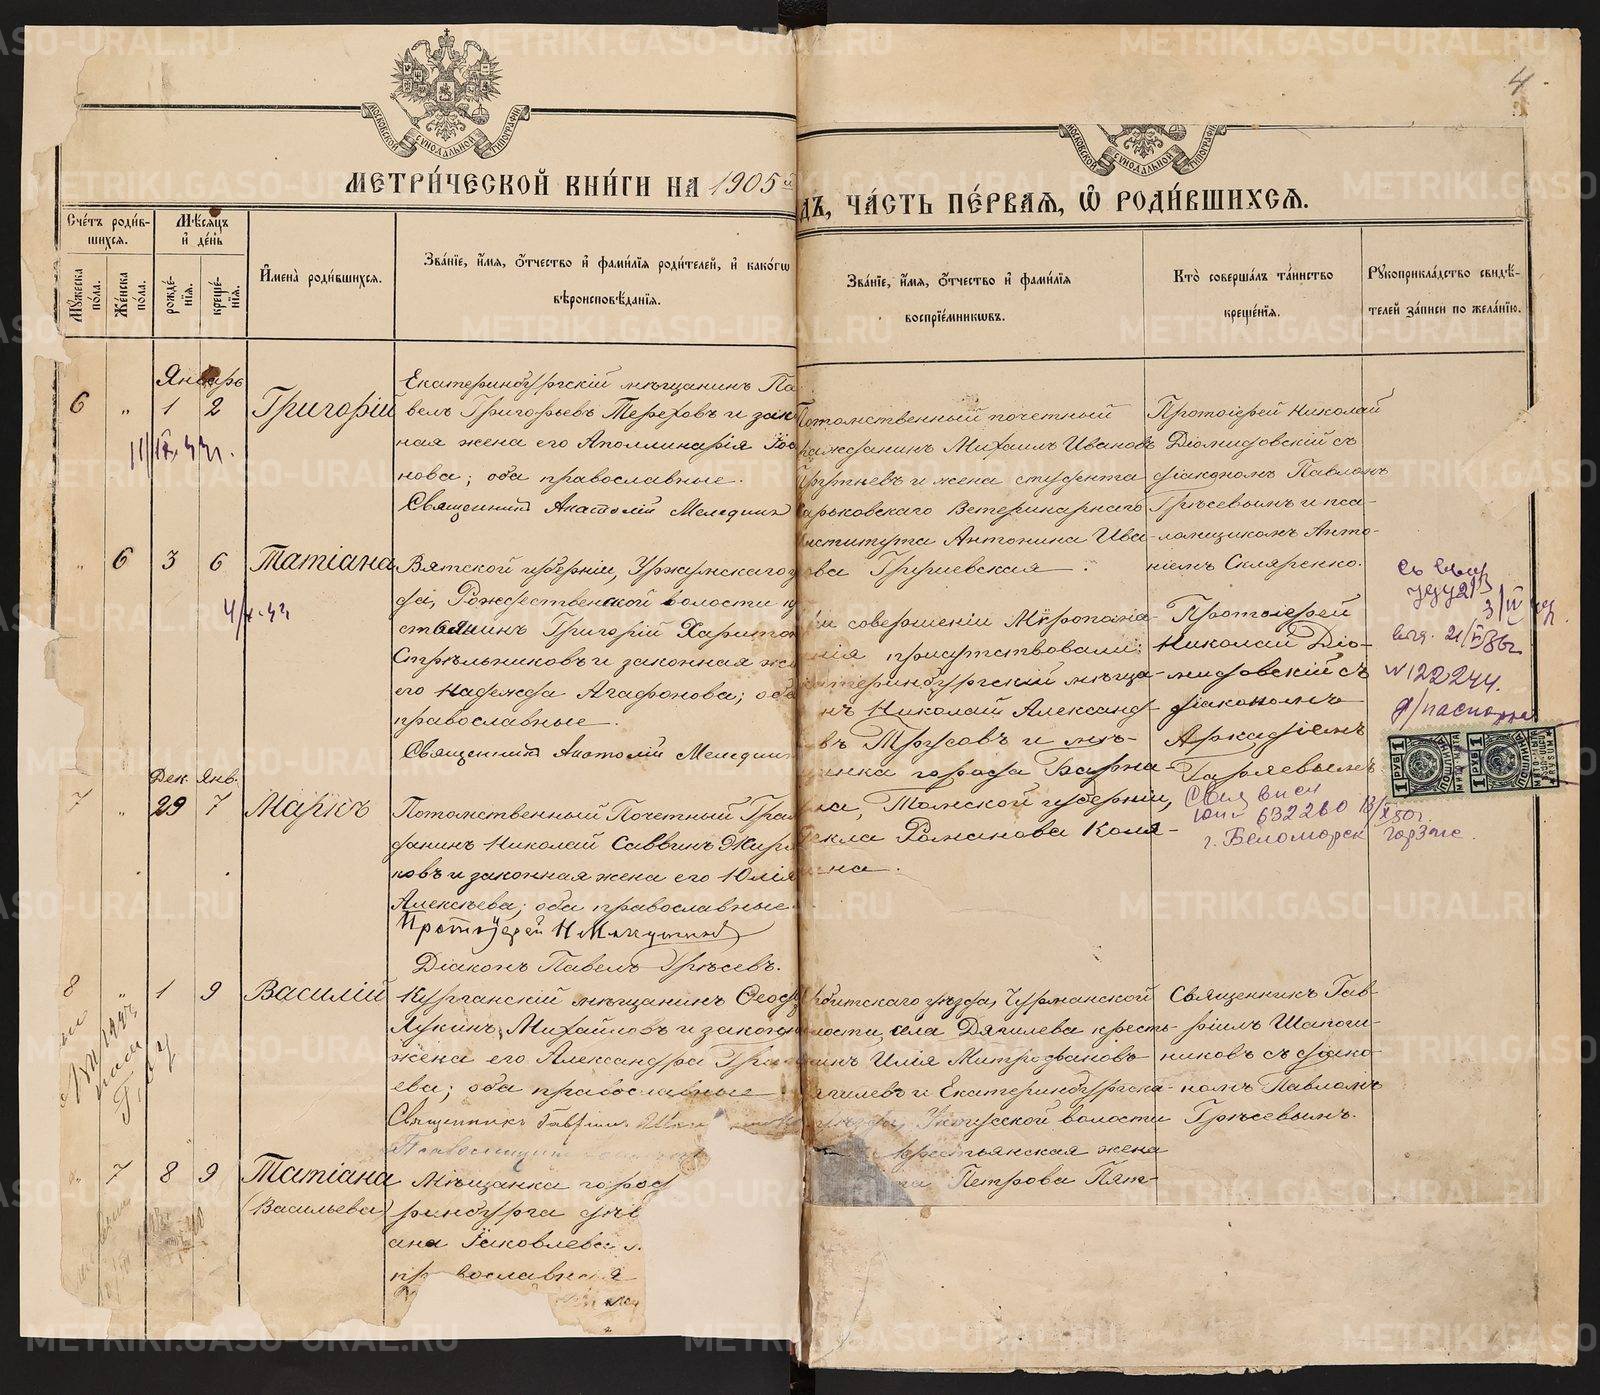 4
МОСКОВСКОЙ СѴНОДАЛЬНОЙ ТИПОГРАФІИ
МОСКОВСКОЙ СѴНОДАЛЬНОЙ ТИПОГРАФІИ
МЕТРИ́ЧЕСКОЙ КНИ́ГИ НА 1905й
ДЪ, ЧА́СТЬ ПЕ́РВАѦ, Ѡ҆ РОДИ́ВШИХСѦ.
Сче́тъ роди́в-
шихсѧ.
Мꙋ́жеска по́ла.
Же́нска по́ла.
Мѣ́сѧцъ
и҆ де́нь
рожде́-
нїѧ.
креще́-
нїѧ.
И҆мена̀ роди́вшихсѧ.
Зва́нїе, и҆́мѧ, ѻ҆́тчество и҆ фами́лїѧ роди́телей, и҆ како́гѡ
вѣроисповѣ́данїѧ.
Зва́нїе, и҆́мѧ, ѻ҆́тчество и҆ фами́лїѧ
воспрїе́мникѡвъ.
Кто̀ соверша́лъ та́инство
креще́нїѧ.
Рꙋкоприкла́дство свидѣ́-
телей за́писи по жела́нїю.
Январь
6 " 1 2 Григорій
Екатеринбургскій мѣщанинъ Па
велъ Григорьевъ Тереховъ и зак
ная жена его Аполлинарія Іоа
нова; оба православные.
Священникъ Анатолій
Потомственный почетный
ражданинъ Михаилъ Ивановъ
и жена студента
арьковскаго Ветеринарнаго
нститута Антонина Ива-
ова Грушевская.
Протоіерей Николай
Діомидовскій съ
діакономъ Павломъ
Грѣсевымъ и пса-
ломщикомъ Анто-
ніемъ Скляренко.
" 6 3 6 Татіана
Вятской губерніи, Уржумскаго у
зда, Рожественской волости кр
стьянинъ Григорій Харитон
Стрѣльниковъ и законная же
его Надежда Агафонова; оба
православные.
Священникъ Анатолій
ри совершеніи Мѵропома-
нія присутствовали:
катеринбургскій мѣща-
нъ Николай Александ-
въ Трусовъ и мѣ-
щанка города Барна-
ла, Томской губерніи,
екла Романова Коля-
ина.
Протоіерей
Николай Діо-
мидовскій съ
діакономъ
Аркадіемъ
Гаряевымъ
21/VI 36г
№122244.
д/паспорта
1 РУБ 1 РУБ
632260 13/X 50г.
г. Беломорск Горзагс.
Дек. Янв.
7 " 29 7 Маркъ
Потомственный Почетный Граж
данинъ Николай Саввинъ Жиря
ковъ и законная жена его Юлія
Алексѣева; оба православные.
Протоіерей Н
Діаконъ Павелъ Грѣсевъ.
8 " 1 9 Василій
Курганскій мѣщанинъ Ѳеод
Лукинъ Михайловъ и законн
жена его Александра Гри
ева; оба православные
Священникъ Гавріилъ
рбитскаго уѣзда, Чурманской
лости, села Дягилева кресть-
нинъ Илія Митрофановъ
ягилевъ и Екатеринбургска-
уѣзда, Уктусской волости
крестьянская жена
Петрова Пят-
Священникъ Гав-
ріилъ Шапош-
никовъ съ діако-
номъ Павломъ
Грѣсевымъ.
" 7 8 9 Татіана
(Васильева)
Мѣщанка город
ринбурга дѣв
ана Іаковлева
пр вославная